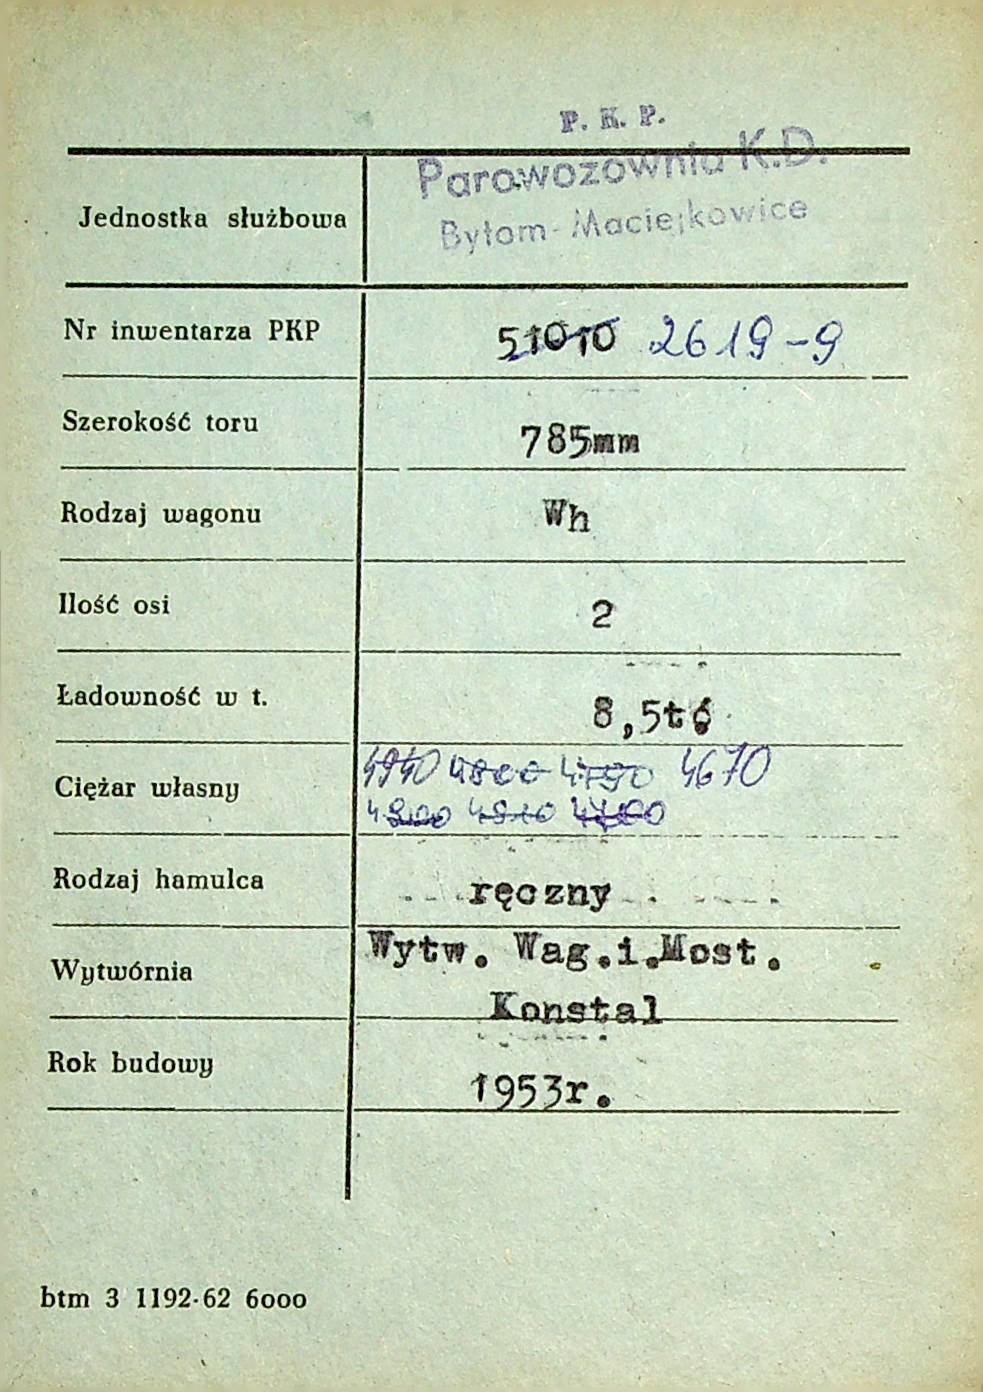 P. K. P.
Parowozownia K.D.
Bytom-Maciejkowice
Jednostka służbowa
Nr inwentarza PKP 51010 2619-9
Szerokość toru 785mm
Rodzaj wagonu Wh
Ilość osi 2
Ładowność w t. 8,5t
Ciężar własny 4940 4800 4750 4670
4810
Rodzaj hamulca ręczny
Wytw. Wag.i.Most.
Wytwórnia
Konstal
Rok budowy 1953r.
btm 3 1192-62 6000